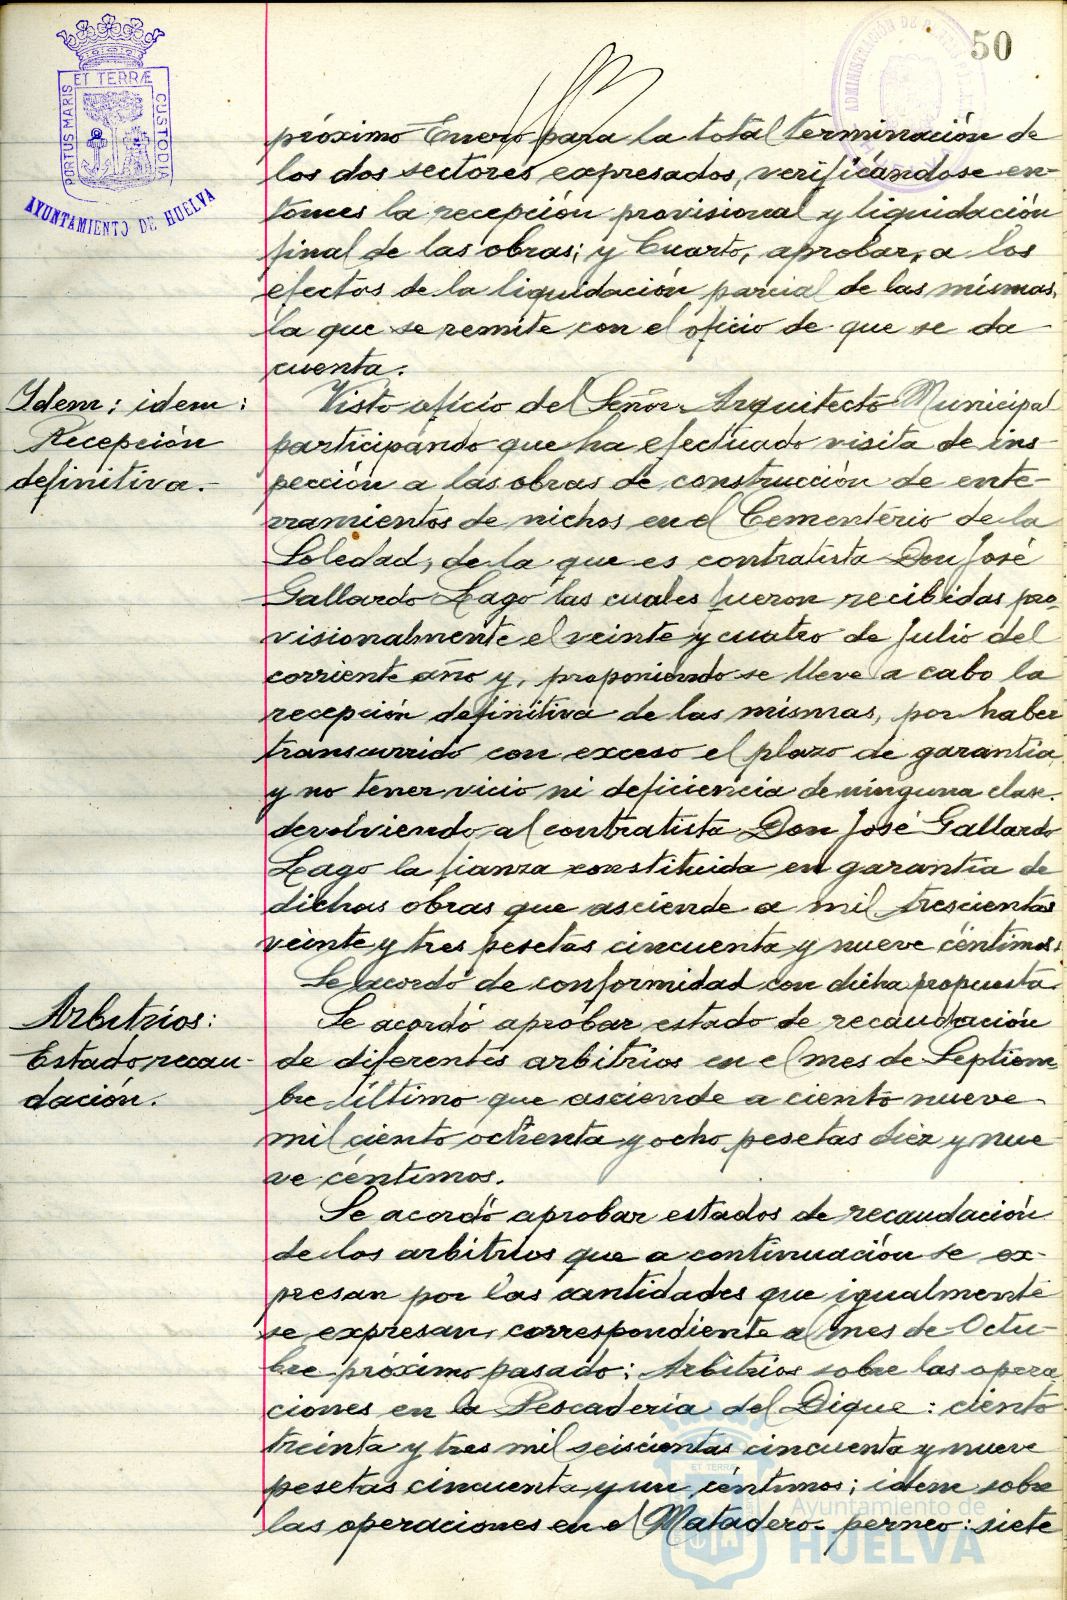 50
ET TERRÆ
PORTUS MARIS
CUSTODIA
AYUNTAMIENTO DE HUELVA
próximo Enero para la total terminación de
los dos sectores expresados, verificándose en-
tonces la recepción provisional y liquidación
final de las obras; y Cuarto, aprobar, a los
efectos de la liquidación parcial de las mismas,
la que se remite con el oficio de que se da
cuenta.
Idem; idem:
Recepción
definitiva.-
Visto oficio del Señor Arquitecto Municipal
participando que ha efectuado visita de ins-
pección a las obras de construcción de ente-
rramientos de nichos en el Cementerio de la
Soledad, de la que es contratista Don José
Gallardo Lago las cuales fueron recibidas pro-
visionalmente el veinte y cuatro de Julio del
corriente año y, proponiendo se lleve a cabo la
recepción definitiva de las mismas, por haber
transcurrido con exceso el plazo de garantía
y no tener vicio ni deficiencia de ninguna clase.
devolviendo al contratista Don José Gallardo
Lago la fianza constituida en garantía de
dichas obras que asciende a mil trescientas
veinte y tres pesetas cincuenta y nueve céntimos.
Se acordó de conformidad con dicha propuesta.
Arbitrios:
Estado recau-
dación.
Se acordó aprobar estado de recaudación
de diferentes arbitrios en el mes de Septiem-
bre último que asciende a ciento nueve
mil ciento ochenta y ocho pesetas diez y nue-
ve céntimos.
Se acordó aprobar estados de recaudación
de los arbitrios que a continuación se ex-
presan por las cantidades que igualmente
se expresan, correspondiente al mes de Octu-
bre próximo pasado: Arbitrios sobre las opera-
ciones en la Pescadería del Dique: ciento
treinta y tres mil seiscientas cincuenta y nueve
pesetas cincuenta y un céntimos; idem sobre
las operaciones en el Matadero- perneo: siete
Ayuntamiento de
HUELVA